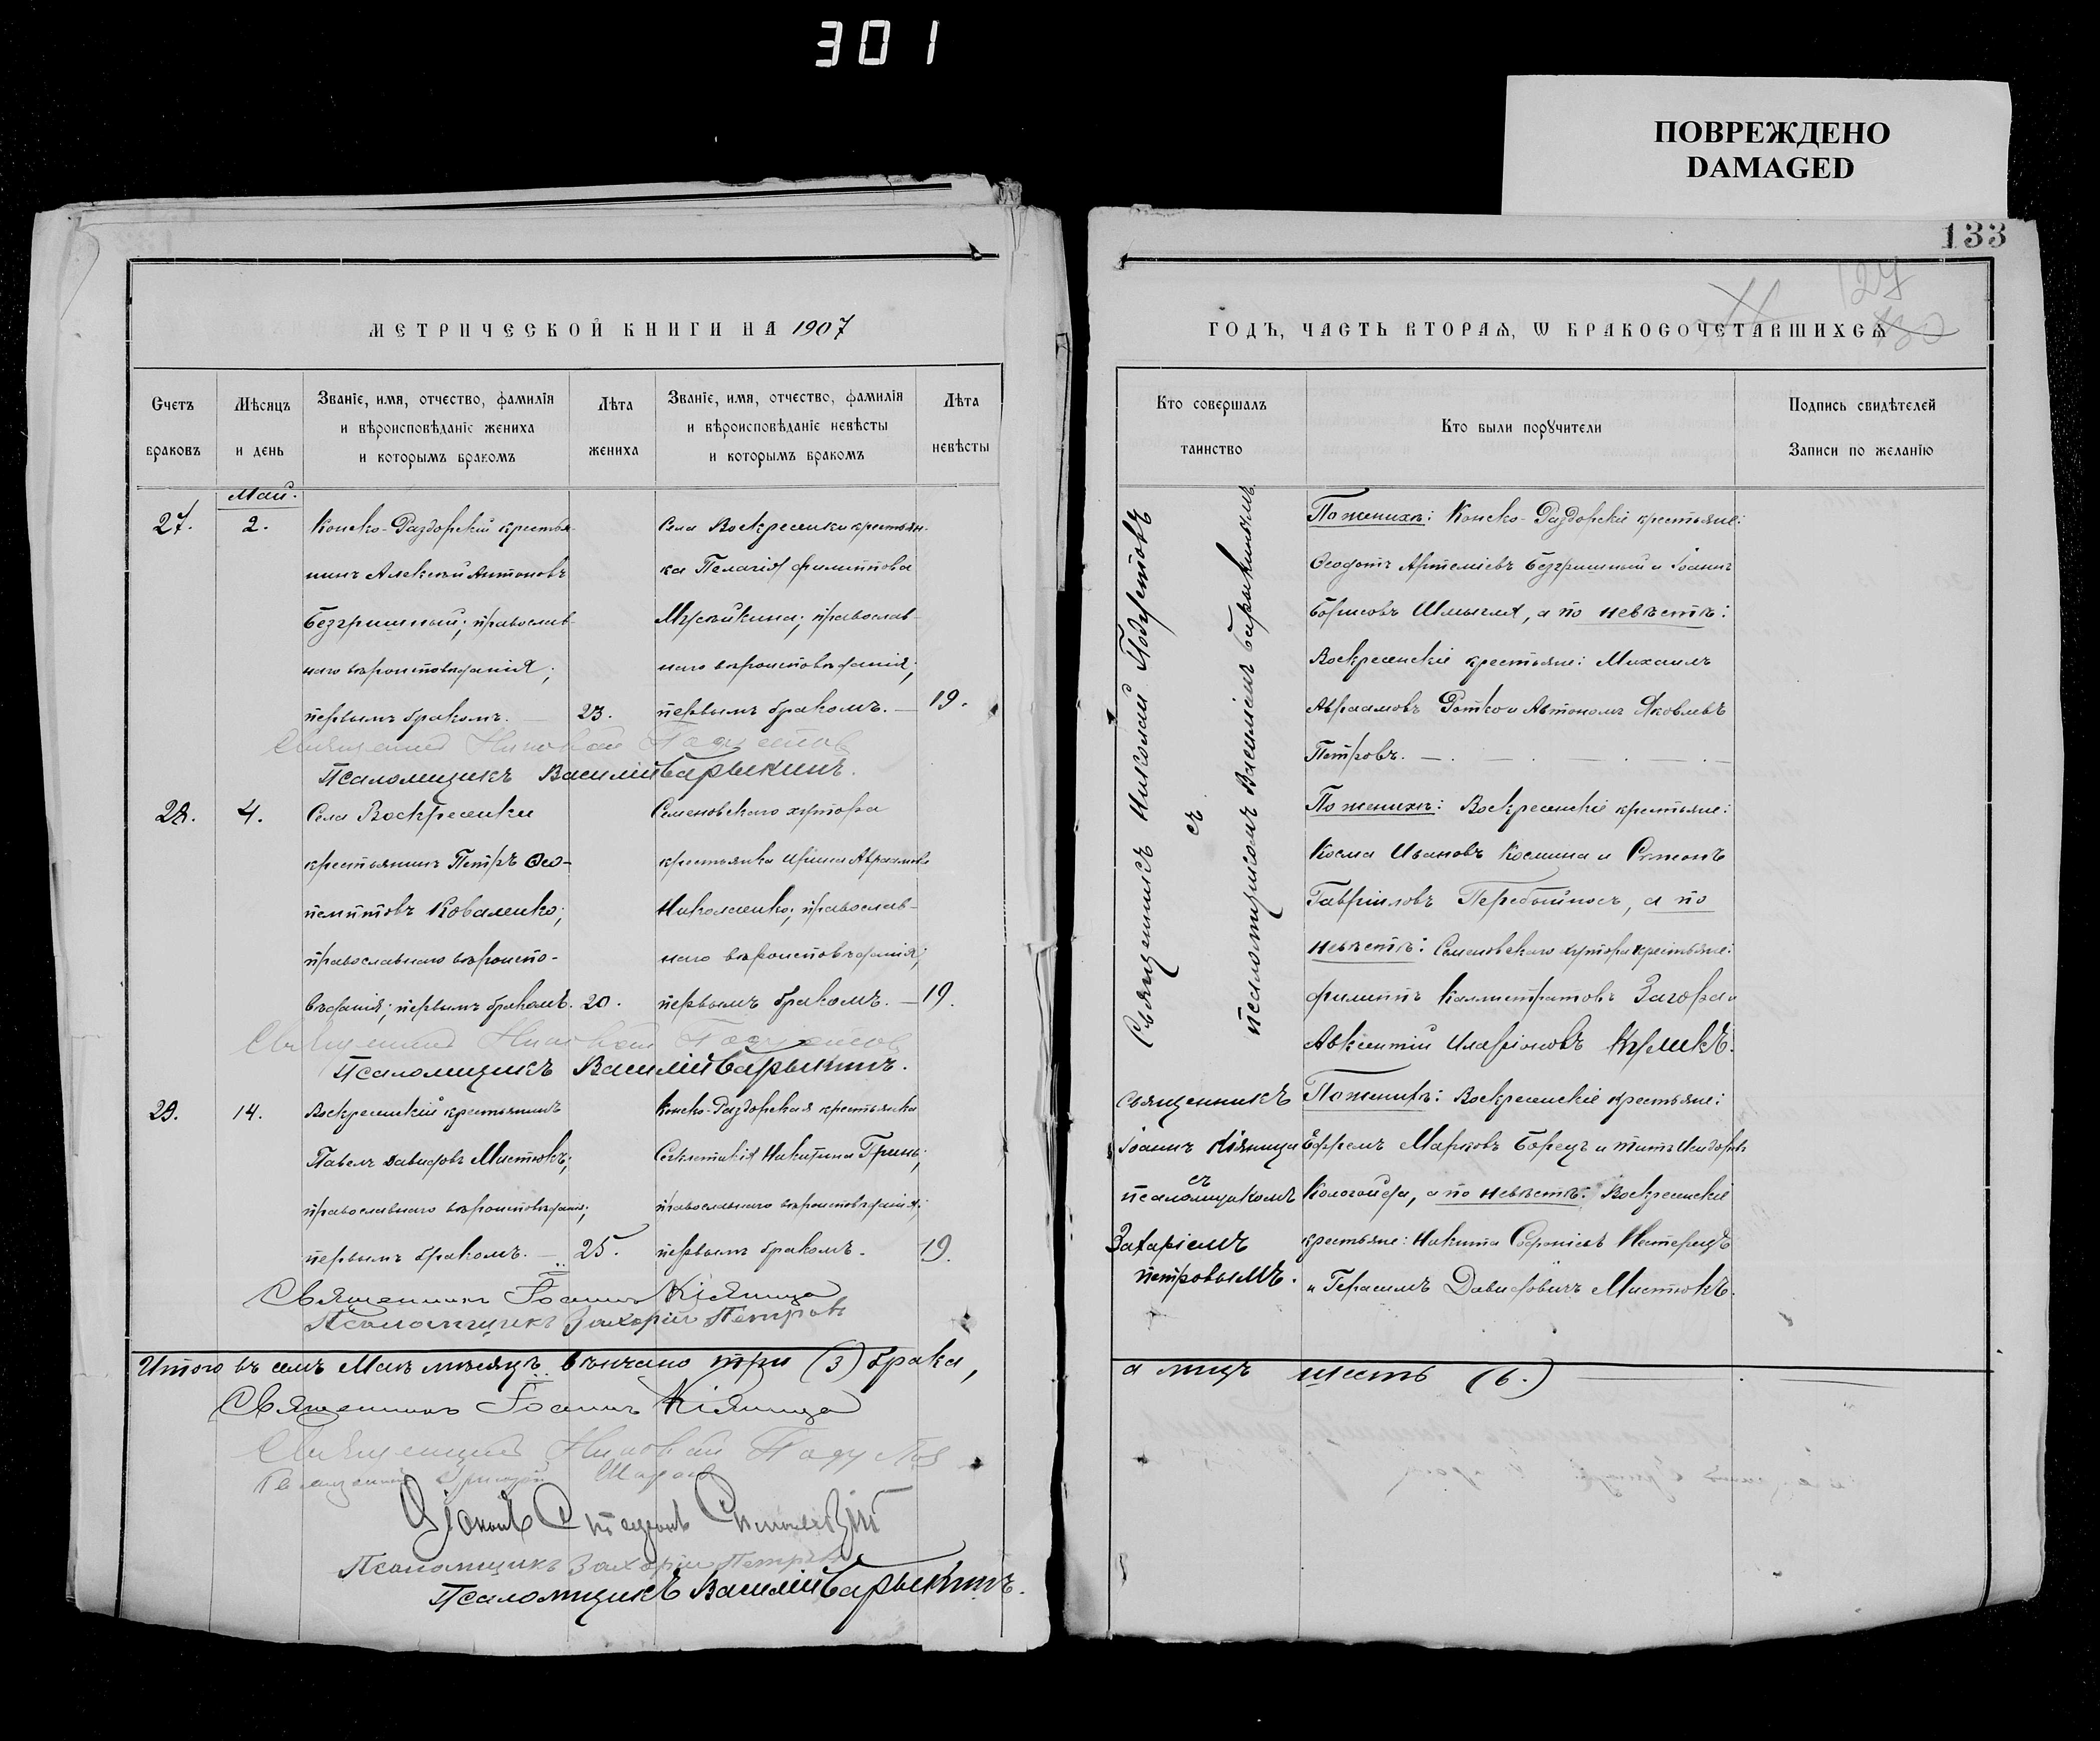 301
ПОВРЕЖДЕНО
DAMAGED
133
127
МЕТРИЧЕСКОЙ КНИГИ НА 1907
Счетъ браковъ
Мѣсяцъ и день
Званіе, имя, отчество, фамилія
и вѣроисповѣданіе жениха
и которымъ бракомъ
Лѣта жениха
Званіе, имя, отчество, фамилія
и вѣроисповѣданіе невѣсты
и которымъ бракомъ
Лѣта невѣсты
Май.
27.
2.
Конско-Раздорскій крестья-
нинъ Алексѣй Антоновъ
Безгришный; православ-
наго вѣроисповѣданія;
первымъ бракомъ. —
23.
Села Воскресенки крестьян-
ка Пелагія Филиппова
православ-
наго вѣроисповѣданія;
первымъ бракомъ. —
19.
Священникъ Николай
Псаломщикъ Василій Барыкинъ.
28.
4.
Села Воскресенки
крестьянинъ Петръ Ѳео-
пемптовъ Коваленко;
православнаго вѣроиспо-
вѣданія; первымъ бракомъ.
20.
Семеновскаго хутора
крестьянка Ирина Авраамова
Николаенко; православ-
наго вѣроисповѣданія;
первымъ бракомъ. —
19.
Священникъ Николай
Псаломщикъ Василій Барыкинъ.
29.
14.
Воскресенскій крестьянинъ
Павелъ Давидовъ Мистюкъ;
православнаго вѣроисповѣданія;
первымъ бракомъ. —
25.
Конско-Раздорская крестьянка
Секлетикія Никитина Гринь;
православнаго вѣроисповѣданія;
первымъ бракомъ.
19.
Священникъ Іоаннъ Кіяница
Псаломщикъ Захарій Петровъ
Итого въ семъ Маѣ мѣсяцѣ вѣнчано три (3) брака,
Священникъ Іоаннъ Кіяница
Священникъ Николай
Діаконъ Стефанъ
Псаломщикъ Захарій Петровъ
Псаломщикъ Василій Барыкинъ.
ГОДЪ, ЧАСТЬ ВТОРАЯ, Ѡ БРАКОСОЧЕТАВШИХСѦ
Кто совершалъ
таинство
Кто были порꙋчители
Подпись свидѣтелей
Записи по желанію
Священникъ Николай
съ
псаломщикомъ Василіемъ Барыкинымъ.
По женихѣ: Конско-Раздорскіе крестьяне:
Ѳеодотъ Артеміевъ Безгришный и Іоаннъ
Борисовъ Шмыгля, а по невѣстѣ:
Воскресенскіе крестьяне: Михаилъ
Авраамовъ Ротко и Автономъ Яковлевъ
Петровъ. —
По женихѣ: Воскресенскіе крестьяне:
Косма Ивановъ Космина и Симонъ
Гавріиловъ Перебыйносъ, а по
невѣстѣ: Семеновскаго хутора крестьяне:
Филиппъ Каллистратовъ Загора и
Авксентій Иларіоновъ
Священникъ
Іоаннъ Кіяница
съ
псаломщикомъ
Захаріемъ
Петровымъ.
По женихѣ: Воскресенскіе крестьяне:
Ефремъ Марковъ Борецъ и Титъ Исидоровъ
а по невѣстѣ: Воскресенскіе
крестьяне: Никита Софроніевъ Нестерецъ
и Герасимъ Давидовичъ Мистюкъ.
а лицъ шесть (6.)